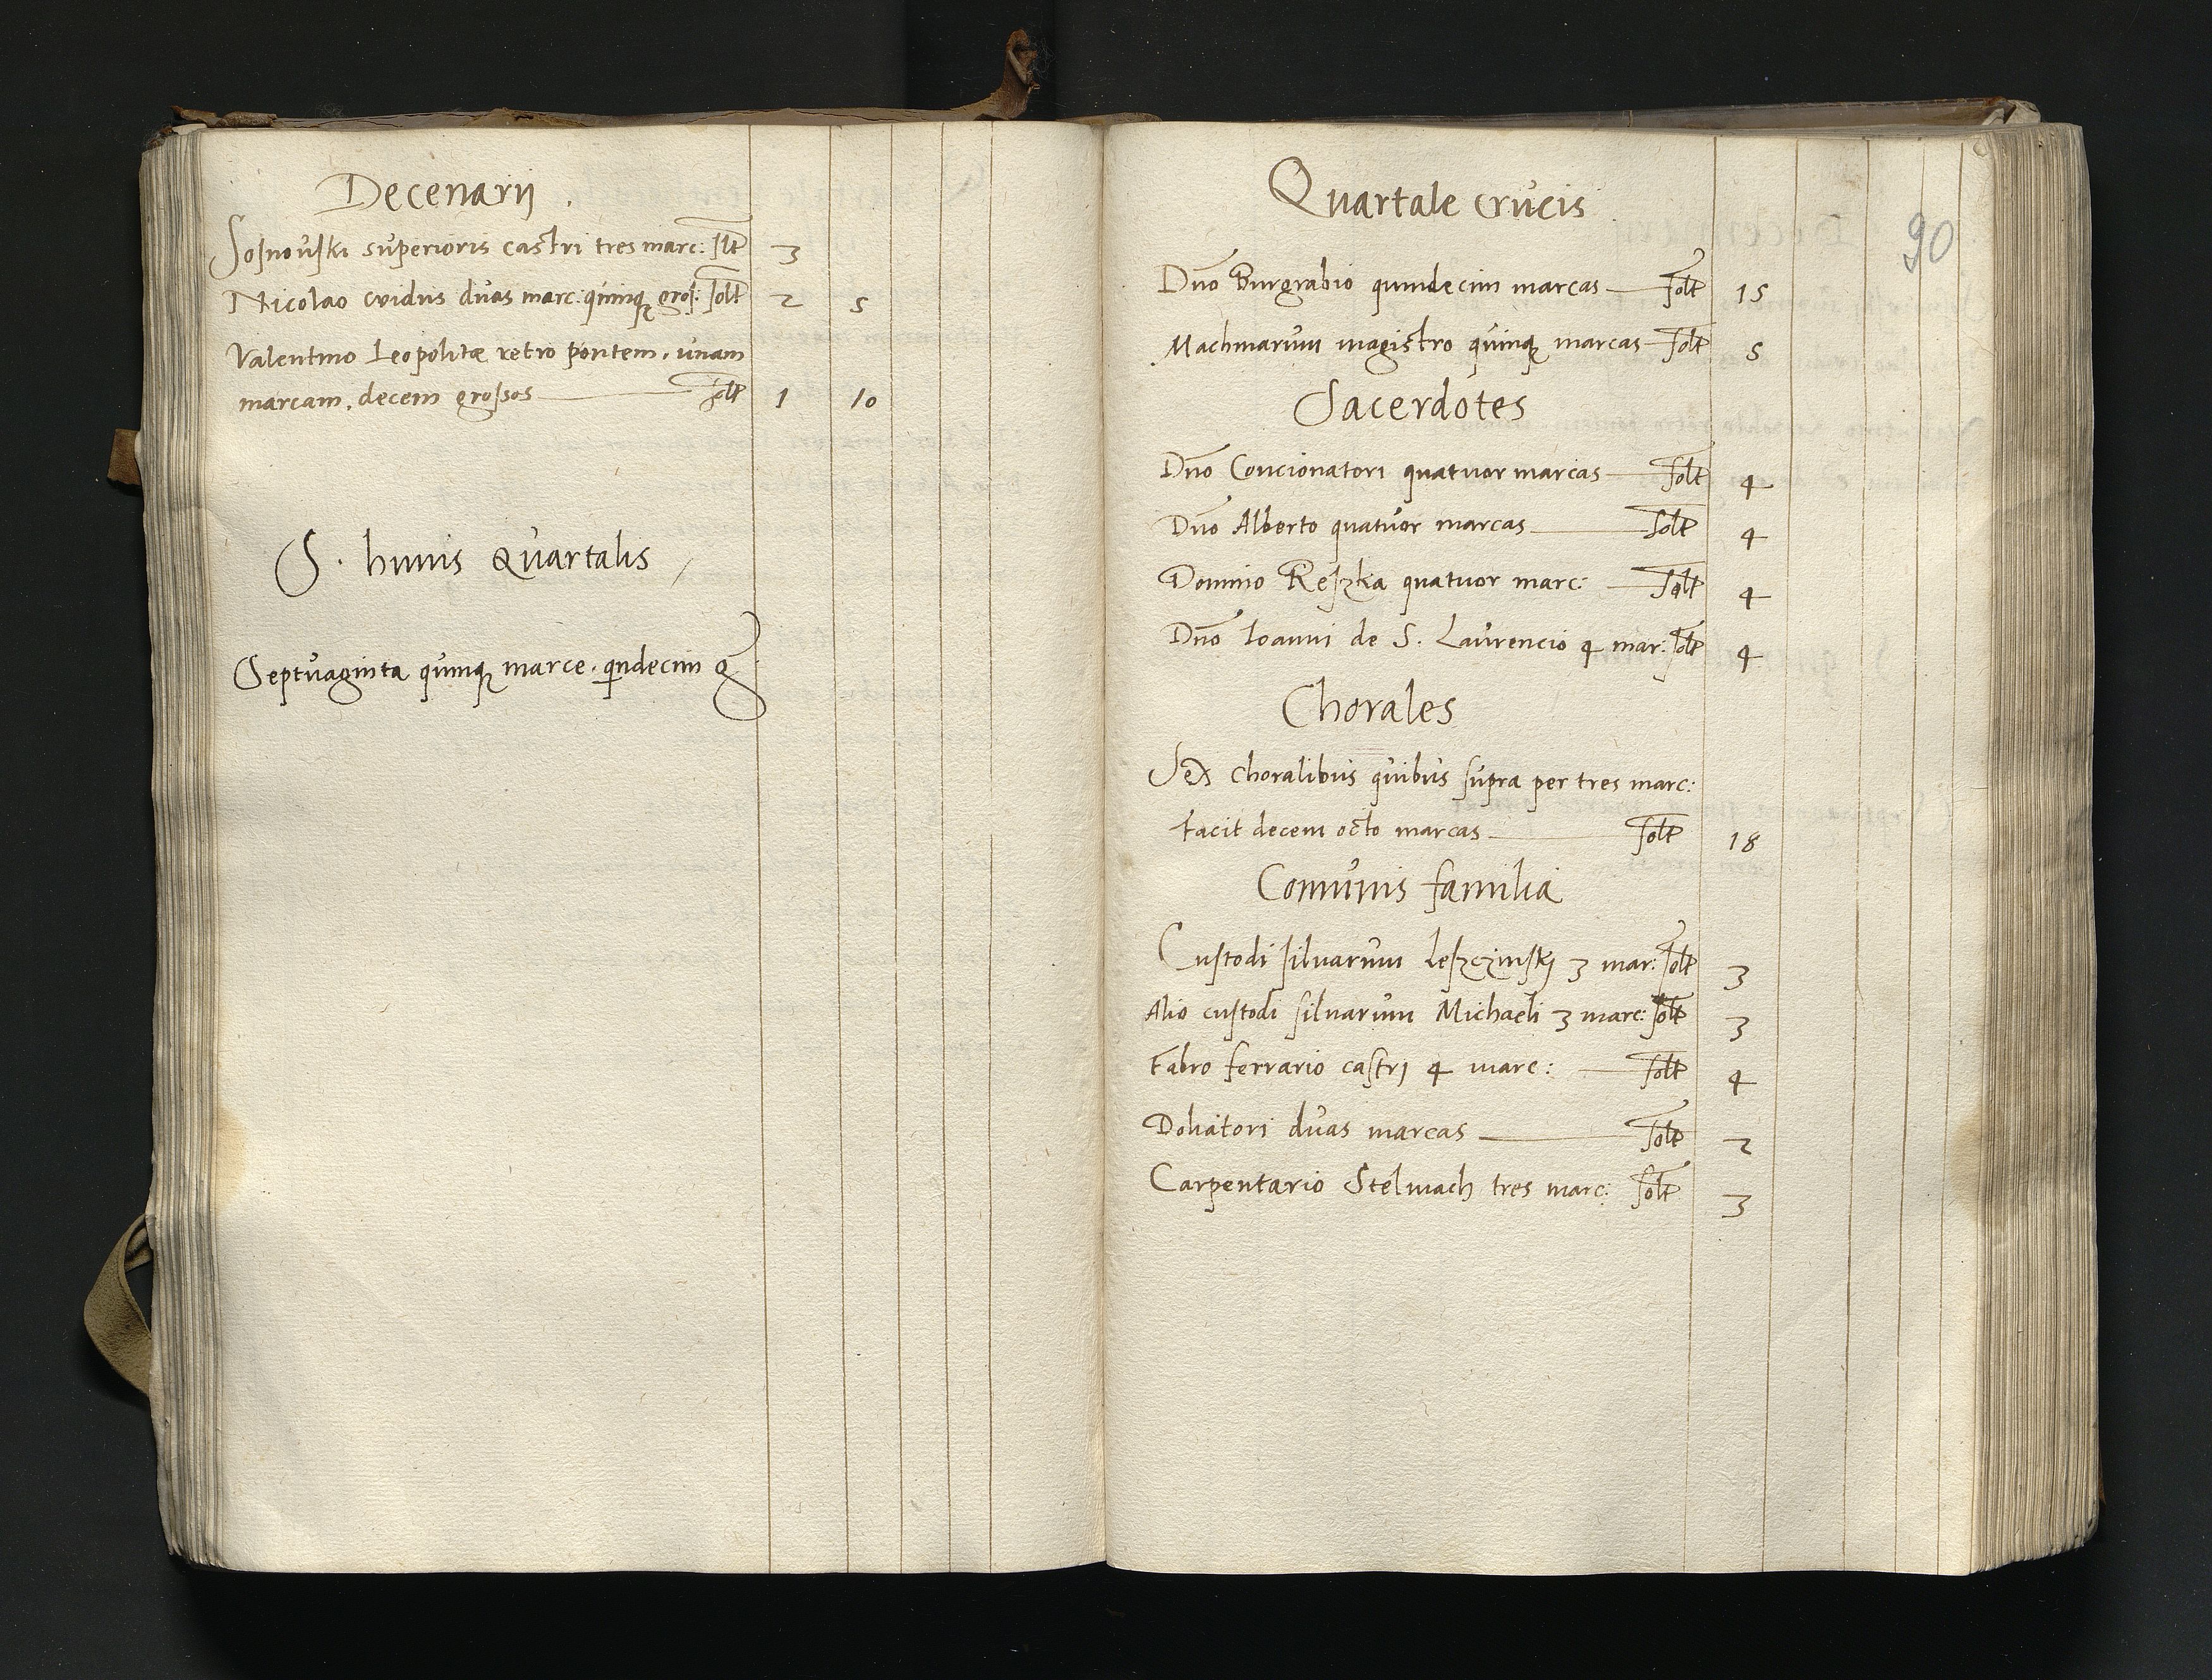 Decenarij .
Sosnowski superioris castri tres marc: slt 3
Nicolao cridus duas marc: quinqꝫ gros: solt 2 5
Valentino Leopolitæ retro pontem . unam
marcam . decem grossos solt 1 10
S . huius Quartalis
Septuaginta quinqꝫ marce . qndecim g
90
Quartale crucis
Dno Burgrabio quindecim marcas solt 15
Machinarum magistro quinqꝫ marcas solt 5
Sacerdotes
Dno Concionatori quatuor marcas solt 4
Dno Alberto quatuor marcas solt 4
Domino Reszka quatuor marc: solt 4
Dno Ioanni de S. Laurencio 4 mar: solt 4
Chorales
Sex choralibus quibus supra per tres marc:
facit decem octo marcas solt 18
Comunis familia
Custodi siluarum Leszczinskj 3 mar: solt 3
Alio custodi siluarum Michaeli 3 marc: solt 3
Fabro ferrario castrj 4 marc: solt 4
Doliatori duas marcas solt 2
Carpentario Stelmach tres marc: solt 3